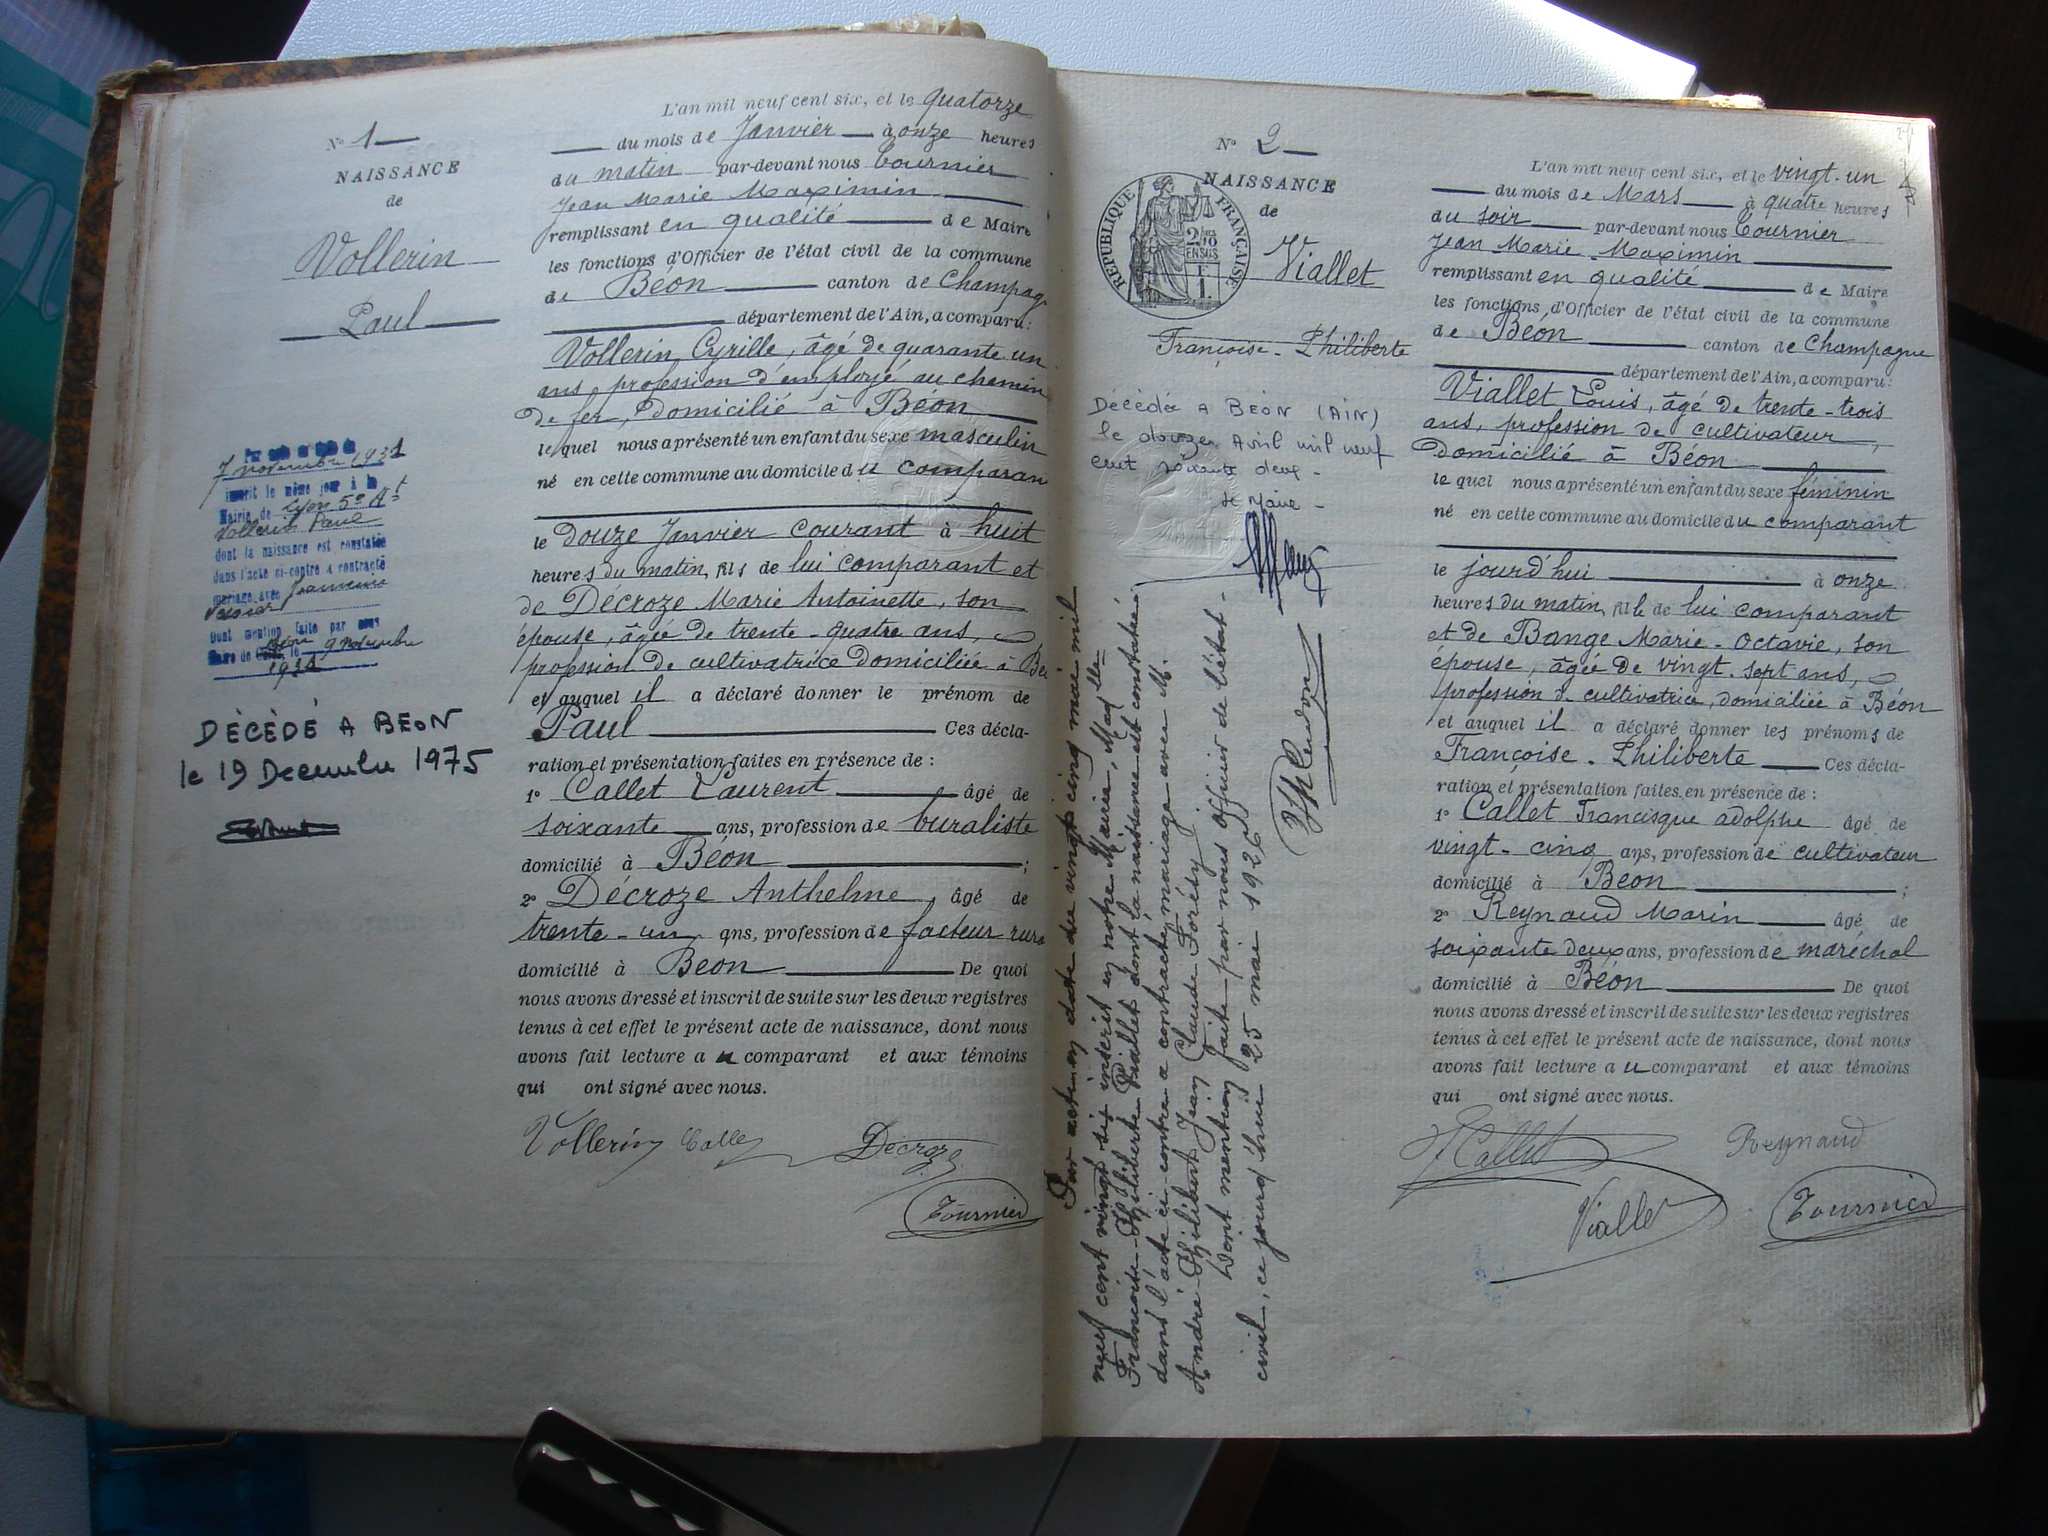 N° 1
NAISSANCE
de
Vollerin
Paul
Par acte en date du
7 novembre 1931
inscrit le même jour à la
Mairie de Lyon 5e Art
Vollerin Paul
dont la naissance est constatée
dans l'acte ci-contre a contracté
mariage avec Jeannine
Dont mention faite par nous
9 novembre
1931
DÉCÉDÉ A BEON
le 19 Decembre 1975
L'an mil neuf cent six, et le quatorze
du mois de Janvier à onze heures
du matin par-devant nous Tournier
Jean Marie Maximin
remplissant en qualité de Maire
les fonctions d'Officier de l'état civil de la commune
de Béon canton de Champag
département de l'Ain, a comparu:
Vollerin Cyrille, âgé de quarante un
ans, profession d'employé au chemin
de fer, domicilié à Béon
lequel nous a présenté un enfant du sexe masculin
né en cette commune au domicile du comparan
le douze Janvier courant à huit
heures du matin, fils de lui comparant et
de Décroze Marie Antoinette, son
épouse, âgée de trente-quatre ans,
profession de cultivatrice domiciliée à Bé
et auquel il a déclaré donner le prénom de
Paul Ces décla-
ration et présentation faites en présence de :
1° Callet Laurent âgé de
soixante ans, profession de buraliste
domicilié à Béon ;
2° Décroze Anthelme, âgé de
trente-un ans, profession de facteur rura
domicilié à Béon De quoi
nous avons dressé et inscrit de suite sur les deux registres
tenus à cet effet le présent acte de naissance, dont nous
avons fait lecture au comparant et aux témoins
qui ont signé avec nous.
Vollerin Callet Decroze
Tournier
N° 2
NAISSANCE
de
Viallet
Françoise-Philiberte
RÉPUBLIQUE FRANÇAISE
2/10
EN SUS
F
1.
Décédée A BEON (AIN)
le douze Avril mil neuf
cent soixante deux -
Le Maire -
Par acte en date du vingt cinq mai mil
neuf cent vingt six inscrit en notre Mairie, Madlle
Françoise-Philiberte Viallet dont la naissance est constatée
dans l'acte ci-contre a contracté mariage avec M.
André-Philibert Jean Claude Forêty
Dont mention faite par nous officier de l'état-
civil, ce jourd'hui 25 mai 1926
L'an mil neuf cent six, et le vingt-un
du mois de Mars à quatre heures
du soir par-devant nous Tournier
Jean Marie Maximin
remplissant en qualité de Maire
les fonctions d'Officier de l'état civil de la commune
de Béon canton de Champagne
département de l'Ain, a comparu:
Viallet Louis, âgé de trente-trois
ans, profession de cultivateur,
domicilié à Béon
lequel nous a présenté un enfant du sexe féminin
né en cette commune au domicile du comparant
le jourd'hui à onze
heures du matin, fille de lui comparant
et de Bange Marie-Octavie, son
épouse, âgée de vingt-sept ans,
profession de cultivatrice, domiciliée à Béon
et auquel il a déclaré donner les prénoms de
Françoise-Philiberte Ces décla-
ration et présentation faites en présence de :
1° Callet Francisque adolphe âgé de
vingt-cinq ans, profession de cultivateur
domicilié à Béon ;
2° Reynaud Marin âgé de
soixante deux ans, profession de maréchal
domicilié à Béon De quoi
nous avons dressé et inscrit de suite sur les deux registres
tenus à cet effet le présent acte de naissance, dont nous
avons fait lecture au comparant et aux témoins
qui ont signé avec nous.
Callet Reynaud
Viallet Tournier